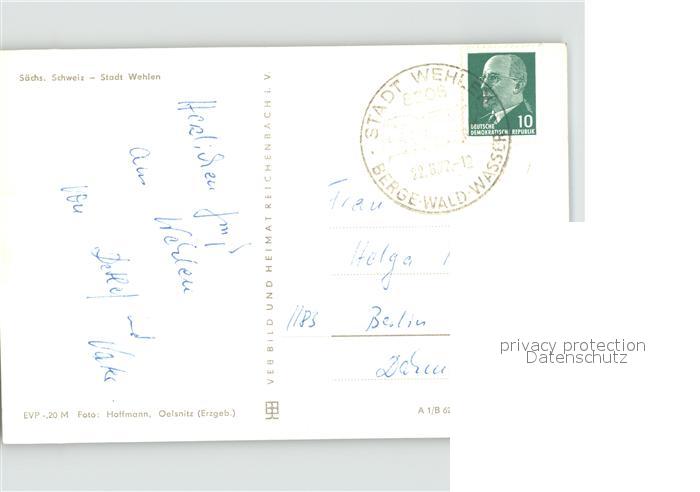 Sächs. Schweiz – Stadt Wehlen
Herzlichen
aus Wehlen
von Detlef und
VEB BILD UND HEIMAT REICHENBACH i. V.
STADT WEHLEN
BERGE-WALD-WASSER
DEUTSCHE
DEMOKRATISCHE REPUBLIK
10
Frau
Helga
1183 Berlin
privacy protection
Datenschutz
EVP -,20 M Foto: Hoffmann, Oelsnitz (Erzgeb.)
A 1/B 62